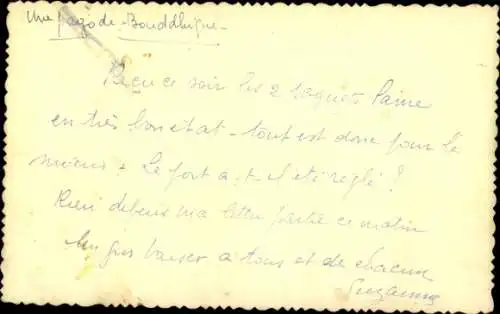 Une pagode Bouddhique -
Reçu ce soir les 2 paquets laine
en très bon état - tout est donc pour le
mieux - Le port a-t-il été réglé ?
Rien depuis ma lettre partie ce matin
Un gros baiser à tous et de chacun
Suzanne